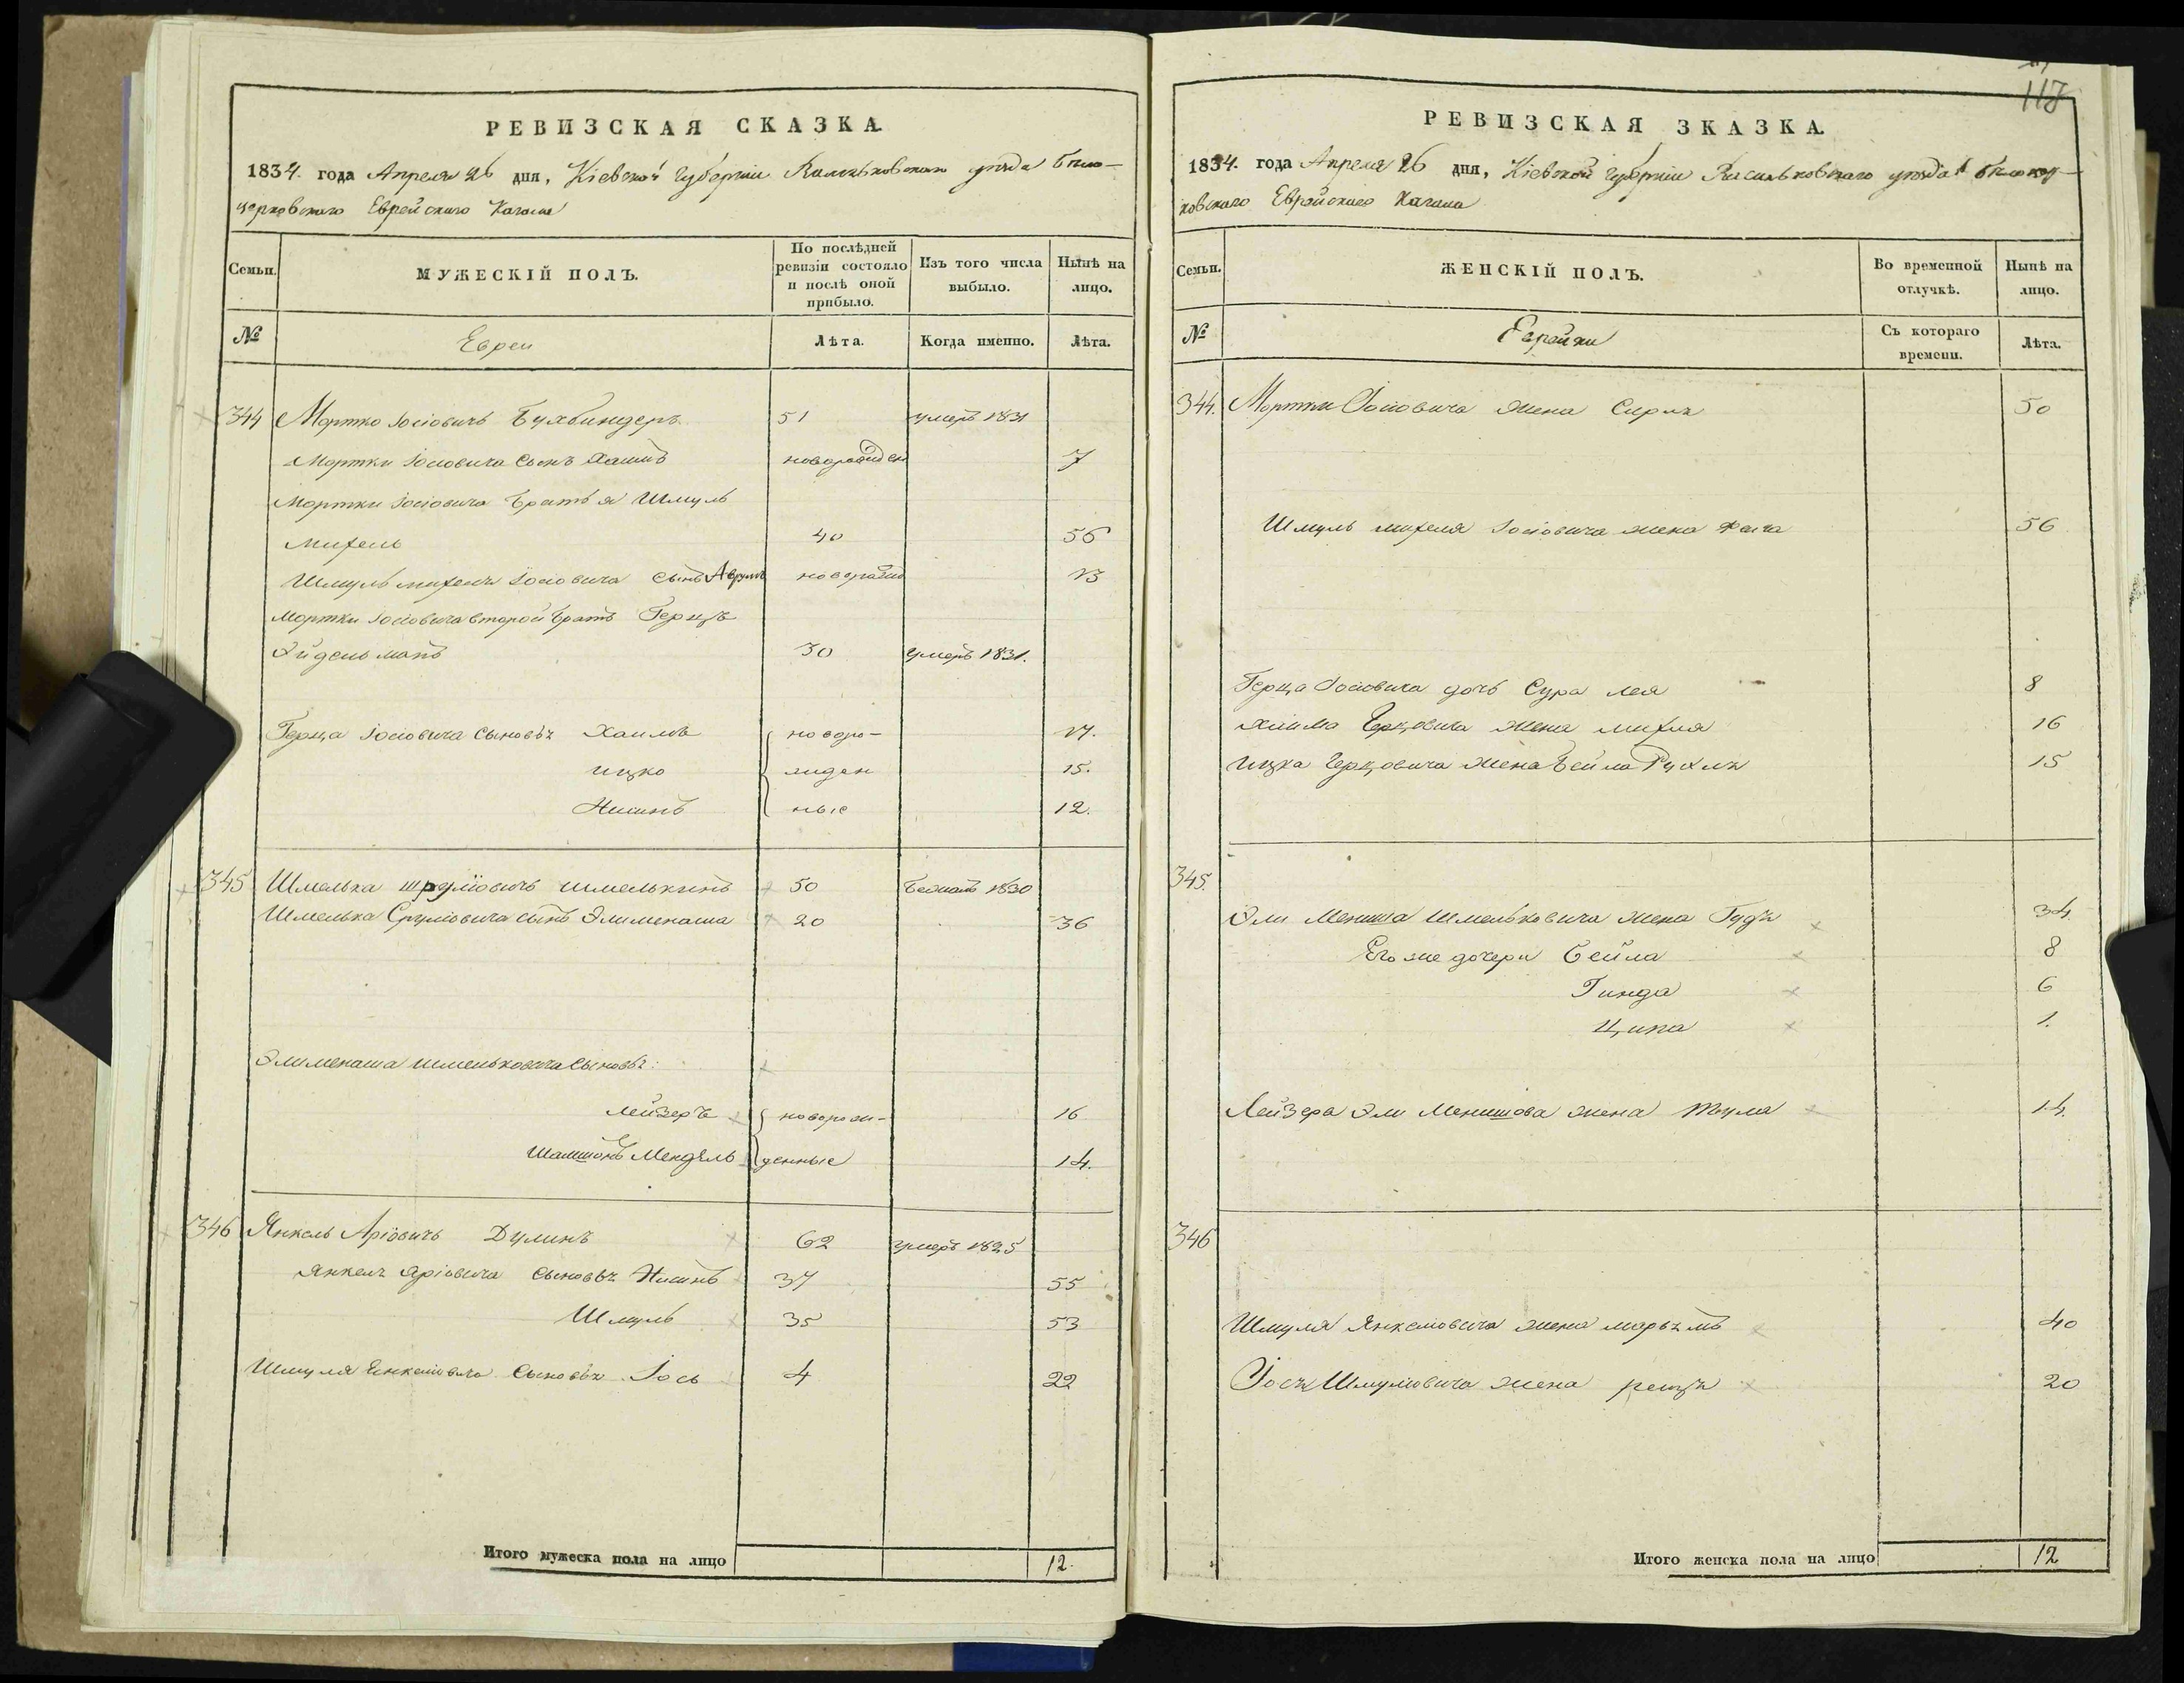 РЕВИЗСКАЯ СКАЗКА.
1834. года Апреля 26 дня, Кіевской Губерніи Васильковскаго уѣзда Бѣло-
церковскаго Еврейскаго Кагала
Семьи.
МУЖЕСКІЙ ПОЛЪ.
По послѣдней ревизіи состояло и послѣ оной прибыло.
Изъ того числа выбыло.
Нынѣ на лицо.
№
Евреи
Лѣта.
Когда именно.
Лѣта.
344 Мортко Іосіовичъ Бухбиндеръ 51 умеръ 1831
Мортки Іосіовича сынъ Хаимъ новорожден 7
Мортки Іосіовича братья Шмуль
Михель 40 56
Шмуль михеля Іосіовича сынъ Аврумъ новорожд 13
Мортки Іосіовича второй братъ Герцъ
Эйдельманъ 30 умеръ 1831.
Герца Іосіовича сыновья Хаимъ новоро- 17.
Ицко жден 15.
Нисинъ ные 12.
345 Шмелька шрулiовичъ шмелькинъ 50 бежалъ 1830
Шмелька Срулiовича сынъ Элименаша 20 36
Элименаша шмельковича сыновья:
Лейзеръ новорож- 16
Шамшонъ Мендель денные 14.
346 Янкель Аріовичъ Дулинъ 62 умеръ 1825
Янкеля Аріовича сыновья Нисинъ 37 55
Шмуль 35 53
Шмуля Енкелiовича сыновья Іось 4 22
Итого мужеска пола на лицо 12.
117
РЕВИЗСКАЯ ЗКАЗКА.
1834. года Апреля 26 дня, Кіевской Губерніи Васильковскаго уѣзда Бѣлоцер-
ковскаго Еврейскаго Кагала
Семьи.
ЖЕНСКІЙ ПОЛЪ.
Во временной отлучкѣ.
Нынѣ на лицо.
№
Еврейки
Съ котораго времени.
Лѣта.
344. Мортки Іосіовича жена Сирля 50
Шмуль михеля Іосіовича жена Фейга 56
Герца Іосіовича дочь Сура лея 8
Хаима Герцовича жена михля 16
Ицка Герцовича жена Бейла Рухля 15
345.
Эли Менаша Шмельковича жена Гудя 34.
Его же дочери Бейла 8
Гинда 6
Ципа 1.
Лейзера Эли Менашова жена 14.
346
Шмуля Янкелiовича жена марьямъ 40
Іося Шмулiовича жена рейзя 20
Итого женска пола на лицо 12